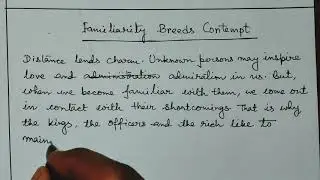 Familiarity Breeds Contempt
Distance lends charm. Unknown persons may inspire
love and administration admiration in us. But,
when we become familiar with them, we come out
in contact with their shortcomings That is why
the kings, the officers and the rich like to
main